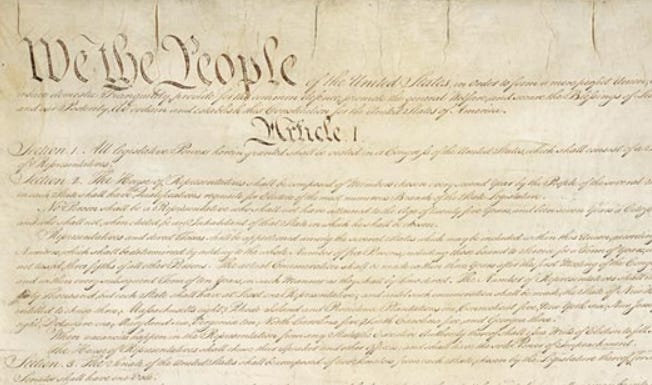 We the People of the United States, in Order to form a more perfect Union,
insure domestic Tranquility, provide for the common defence, promote the general Welfare, and secure the Blessings of
and our Posterity, do ordain and establish this Constitution for the United States of America.
Article. I.
Section. 1. All legislative Powers herein granted shall be vested in a Congress of the United States, which shall consist of a
of Representatives.
Section. 2. The House of Representatives shall be composed of Members chosen every second Year by the People of the several
in each State shall have the Qualifications requisite for Electors of the most numerous Branch of the State Legislature.
No Person shall be a Representative who shall not have attained to the Age of twenty five Years, and been seven Years a
and who shall not, when elected, be an Inhabitant of that State in which he shall be chosen.
Representatives and direct Taxes shall be apportioned among the several States which may be included within this Union, according
Numbers, which shall be determined by adding to the whole Number of free Persons, including those bound to Service for a Term of Years,
not taxed, three fifths of all other Persons. The actual Enumeration shall be made within three Years after the first Meeting of the
and within every subsequent Term of ten Years, in such Manner as they shall by Law direct. The Number of Representatives shall
thirty Thousand, but each State shall have at Least one Representative; and until such enumeration shall be made, the State of New
entitled to chuse three, Massachusetts eight, Rhode-Island and Providence Plantations one, Connecticut five, New-York six, New Jersey
eight, Delaware one, Maryland six, Virginia ten, North Carolina five, South Carolina five, and Georgia three.
When vacancies happen in the Representation from any State, the Executive Authority thereof shall issue Writs of Election to fill
The House of Representatives shall chuse their Speaker and other Officers; and shall have the sole Power of Impeachment.
Section. 3. The Senate of the United States shall be composed of two Senators from each State, chosen by the Legislature thereof,
Senator shall have one Vote.